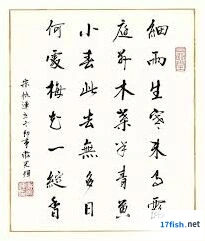 細雨生寒未有霜
庭前木葉半青黃
小春此去無多日
何處梅花一綻香
宋仇遠立冬即事
17fish.net